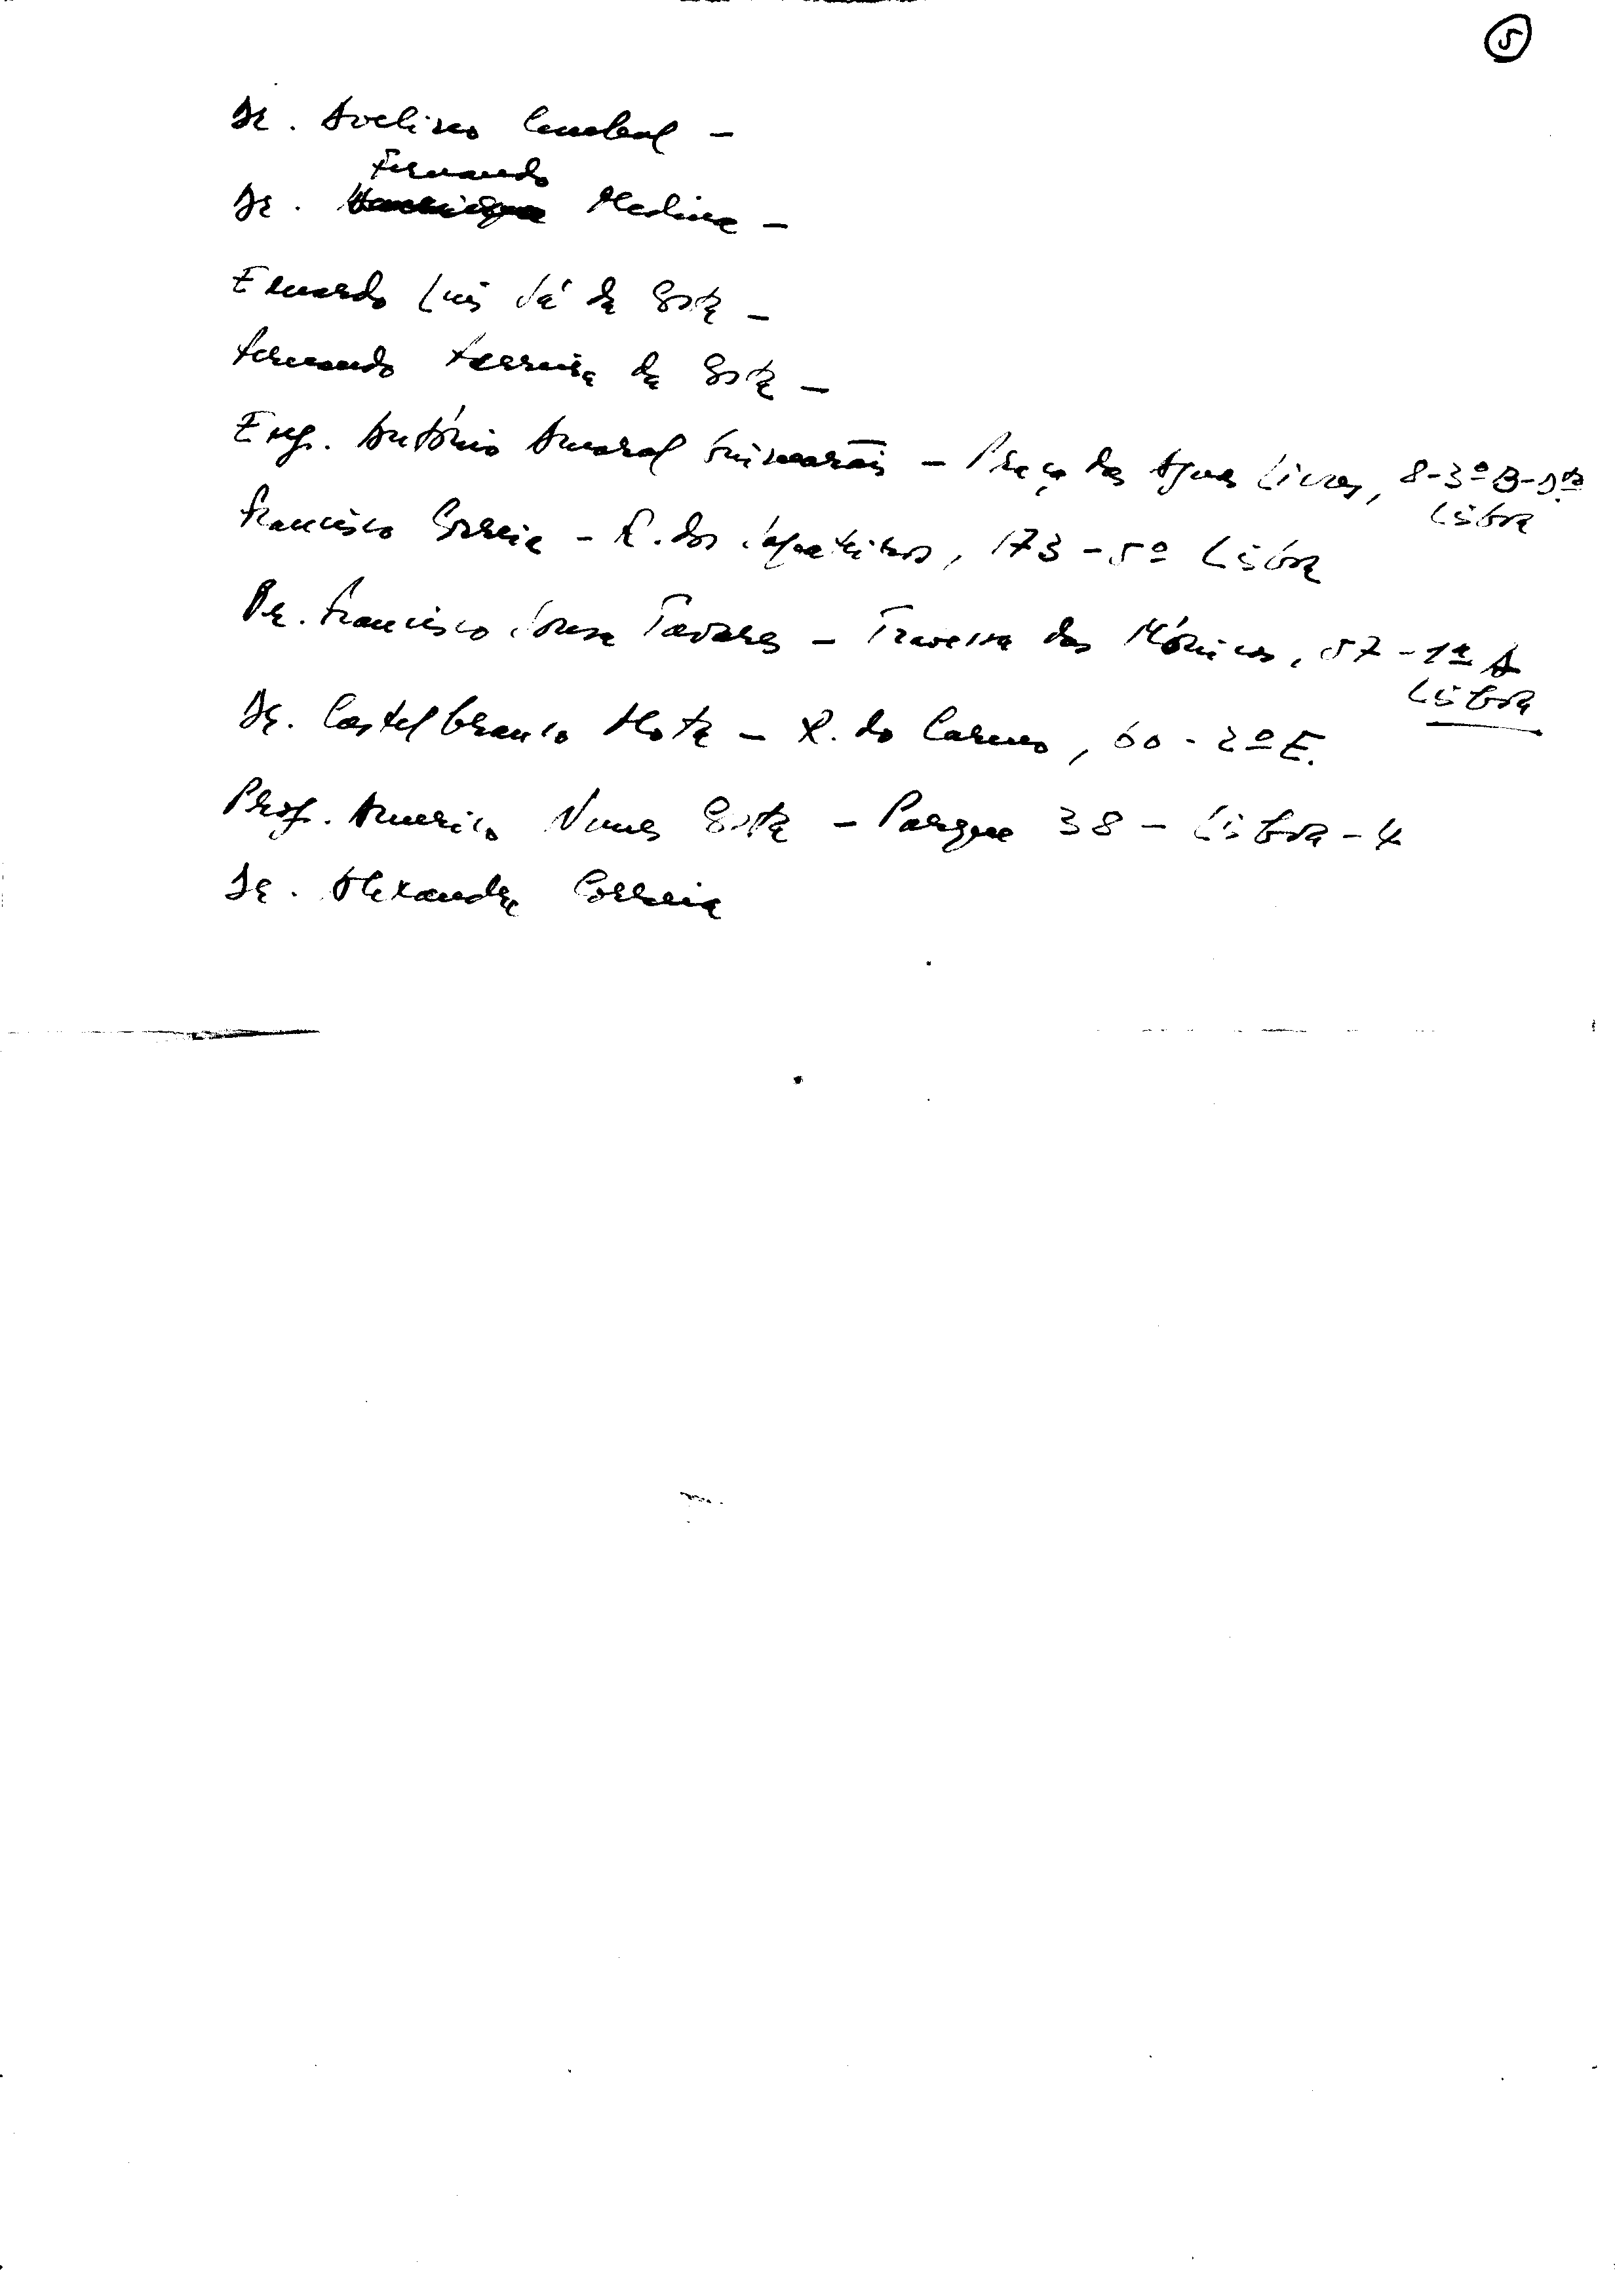 5
Dr. Avelino Cunhal -
Fernando
Dr. Medina -
Eduardo Luís Sá da Costa -
Fernando Ferreira da Costa -
Eng. António Amaral Guimarãis - Praça das Aguas Livres, 8-3º B-Dtº
Lisboa
Francisco Correia - R. dos Sapateiros, 173 - 5º Lisboa
Dr. Francisco Sousa Tavares - Travessa das Mónicas, 57 - 1º A
Lisboa
Dr. Castelbranco Mota - R. do Carmo, 60 - 2º E.
Prof. Americo Nunes Costa - Parque 38 - Lisboa - 4
Dr. Alexandre Correia